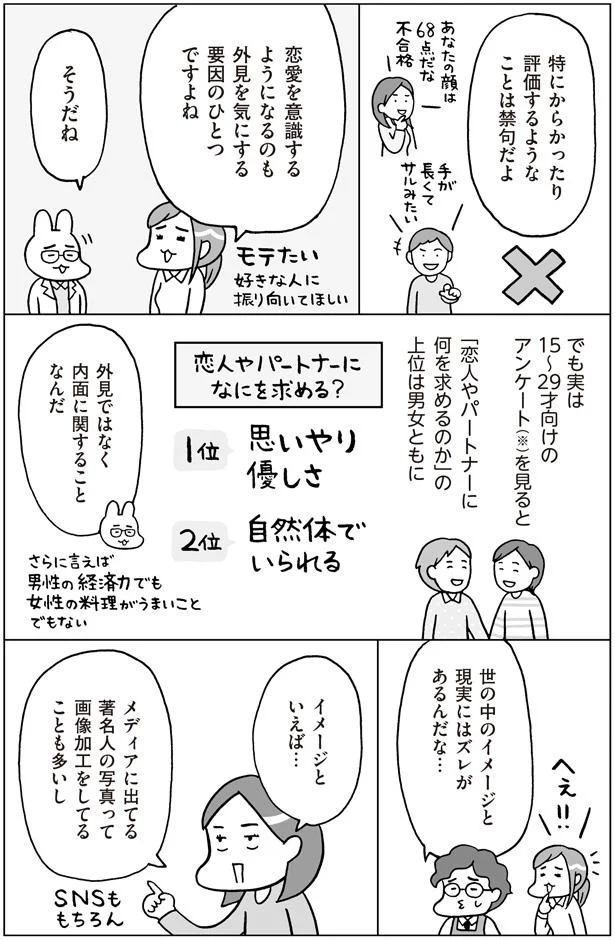 特にからかったり
評価するような
ことは禁句だよ
あなたの顔は
68点だな
不合格
手が
長くて
サルみたい
恋愛を意識する
ようになるのも
外見を気にする
要因のひとつ
ですよね
モテたい
好きな人に
振り向いてほしい
そうだね
でも実は
15〜29才向けの
アンケート(※)を見ると
「恋人やパートナーに
何を求めるのか」の
上位は男女ともに
恋人やパートナーに
なにを求める?
1位
思いやり
優しさ
2位
自然体で
いられる
外見ではなく
内面に関すること
なんだ
さらに言えば
男性の経済力でも
女性の料理がうまいこと
でもない
へぇ!!
世の中のイメージと
現実にはズレが
あるんだな…
イメージと
いえば…
メディアに出てる
著名人の写真って
画像加工をしてる
ことも多いし
SNSも
もちろん